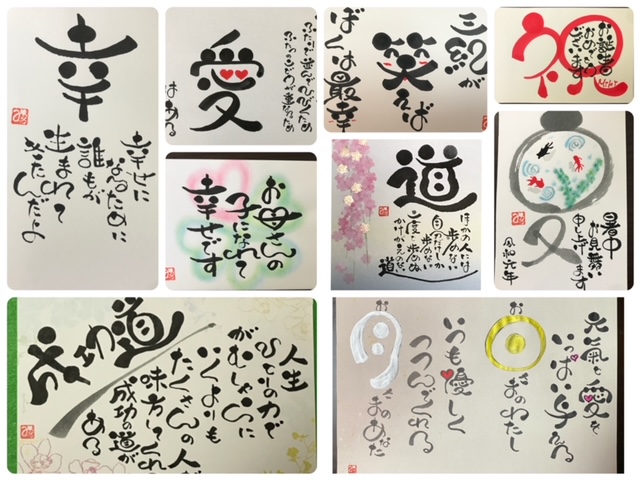 幸
幸せに
なるために
誰もが
生まれて
きたんだよ
愛
はある
三紀が
笑えば
ぼくは最幸
祝
おめでとう
ございます
お母さんの
子になれて
幸せです
道
ほかの人には
歩めない
自分だけしか
歩めない
一度しか歩めぬ
かけがえのない
道
暑中
お見舞い
申し上げます
令和元年
成功道
人生
ひとりの力で
がむしゃらに
いくよりも
たくさんの人が
味方してくれる
成功の道が
ある
元氣と愛を
いっぱい与える
お日さまのわたし
いつも優しく
つつんでくれる
お月さまのあなた